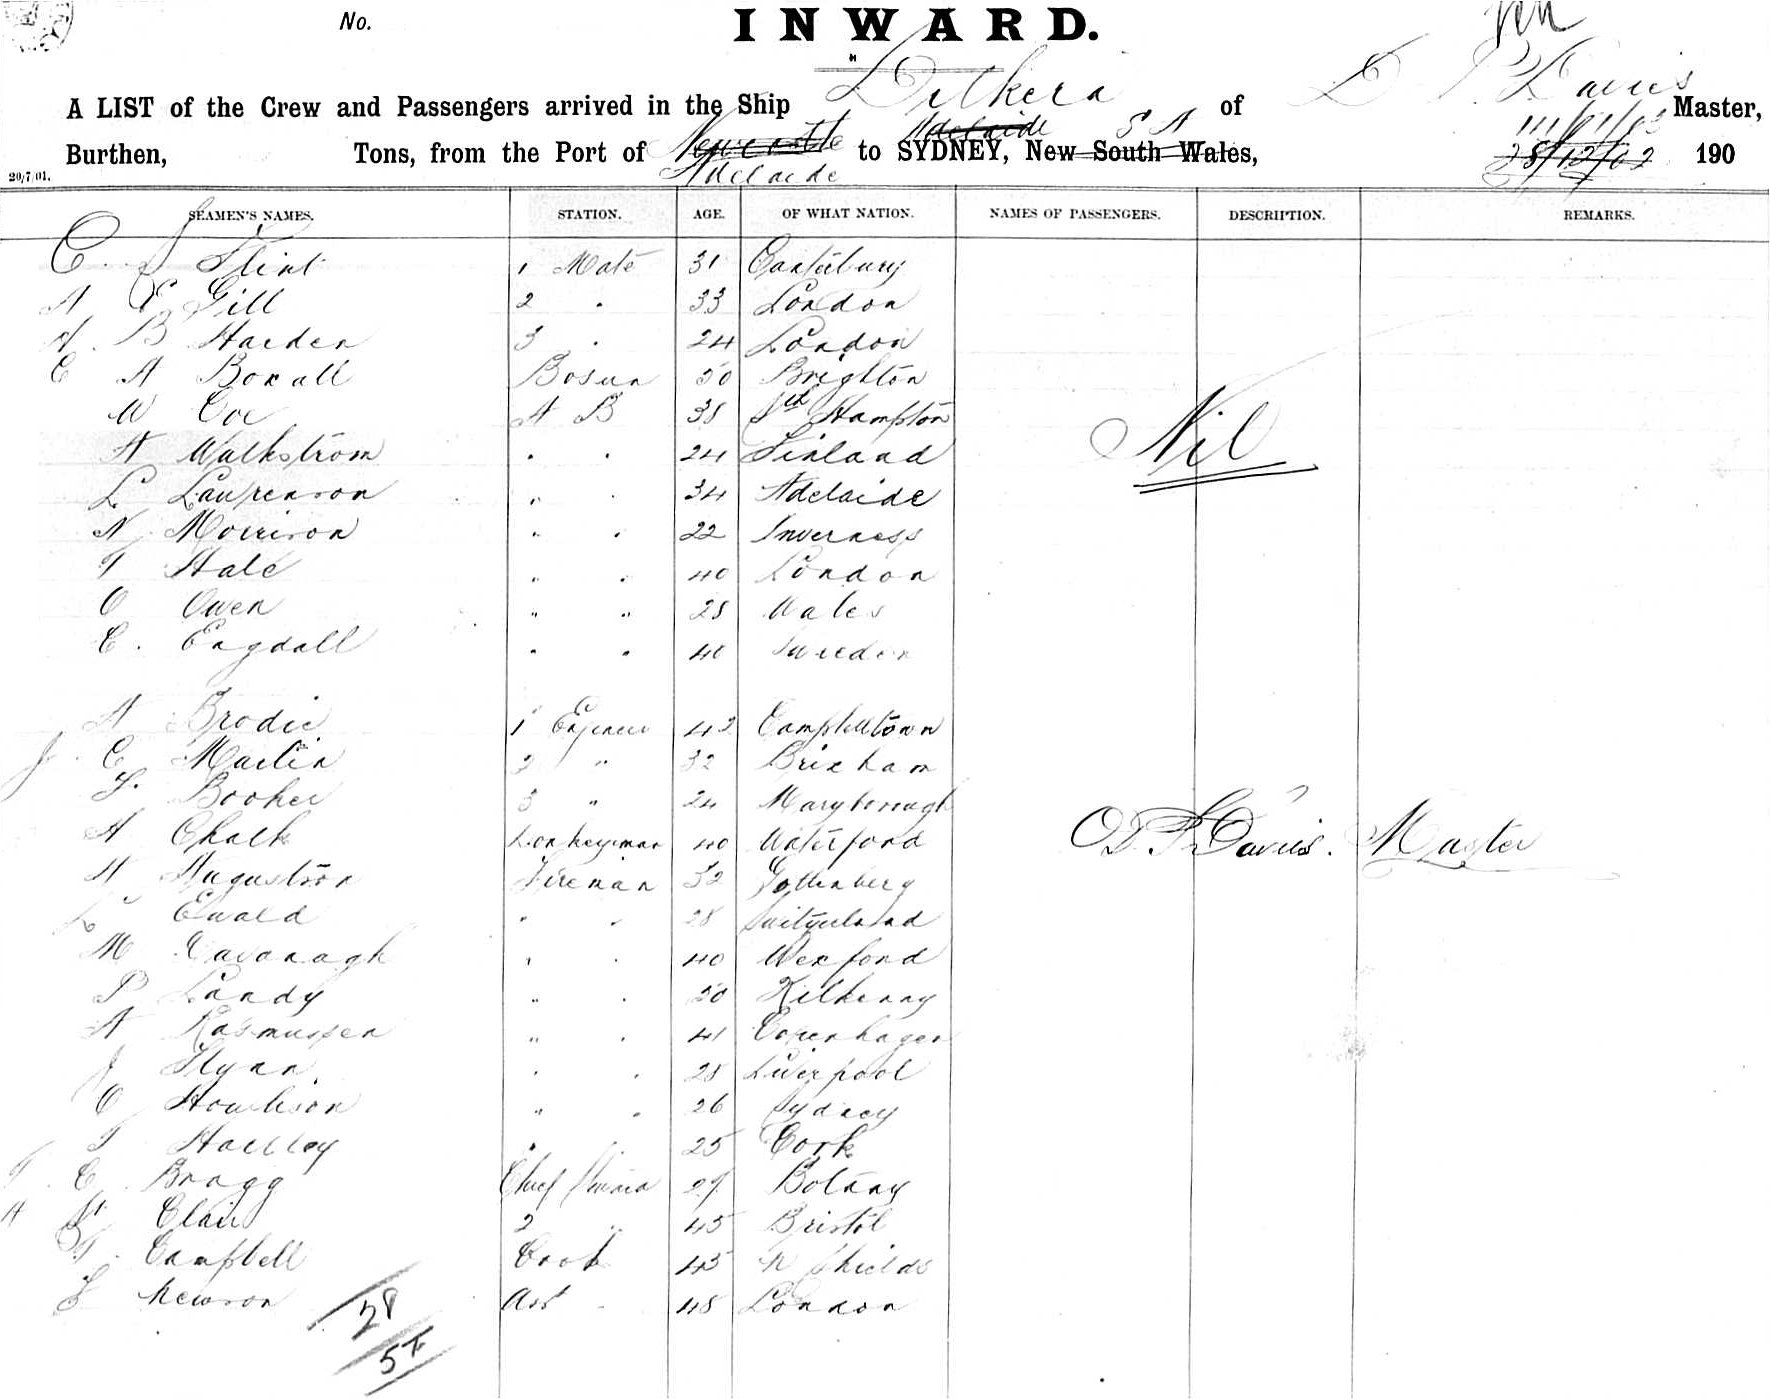 No. INWARD.
A LIST of the Crew and Passengers arrived in the Ship Dilkera of D P Davies Master,
Adelaide S A 11/1/03
Burthen, Tons, from the Port of Newcastle to SYDNEY, New South Wales, 28/12/02 190
20/7/01. Adelaide
SEAMEN'S NAMES. STATION. AGE. OF WHAT NATION. NAMES OF PASSENGERS. DESCRIPTION. REMARKS.
C. J Flint 1 Mate 31 Canterbury
A E Gill 2 " 33 London
H. B Harden 3 " 24 London
C A Boxall Bosun 50 Brighton
W Coe A B 38 Sth Hampton
H Walkstrom " " 24 Finland
Nil
L Laurenson " " 34 Adelaide
N Morrison " " 22 Inverness
T Hale " " 40 London
O Owen " " 28 Wales
C. Engdall " " 40 Sweden
A Brodie 1 Engineer 42 Campbeltown
J. C Martin 2 " 32 Brixham
F. Booker 3 " 24 Maryborough
A Chalk Donkeyman 40 Waterford
D P Davies. Master
A Augustron Fireman 32 Gottenberg
L Ewald " " 28 Switzerland
M Cavanagh " " 40 Wexford
P Landy " " 50 Kilkenny
A Rasmussen " " 41 Copenhagen
J Flynn " " 28 Liverpool
O Howlison " " 26 Sydney
T Hartley " " 25 Cork
T. C. Bragg Chief 29 Botany
A St Clair 2 " 45 Bristol
T. Campbell Cook 45 N Shields
F Newson Asst 48 London
28
5